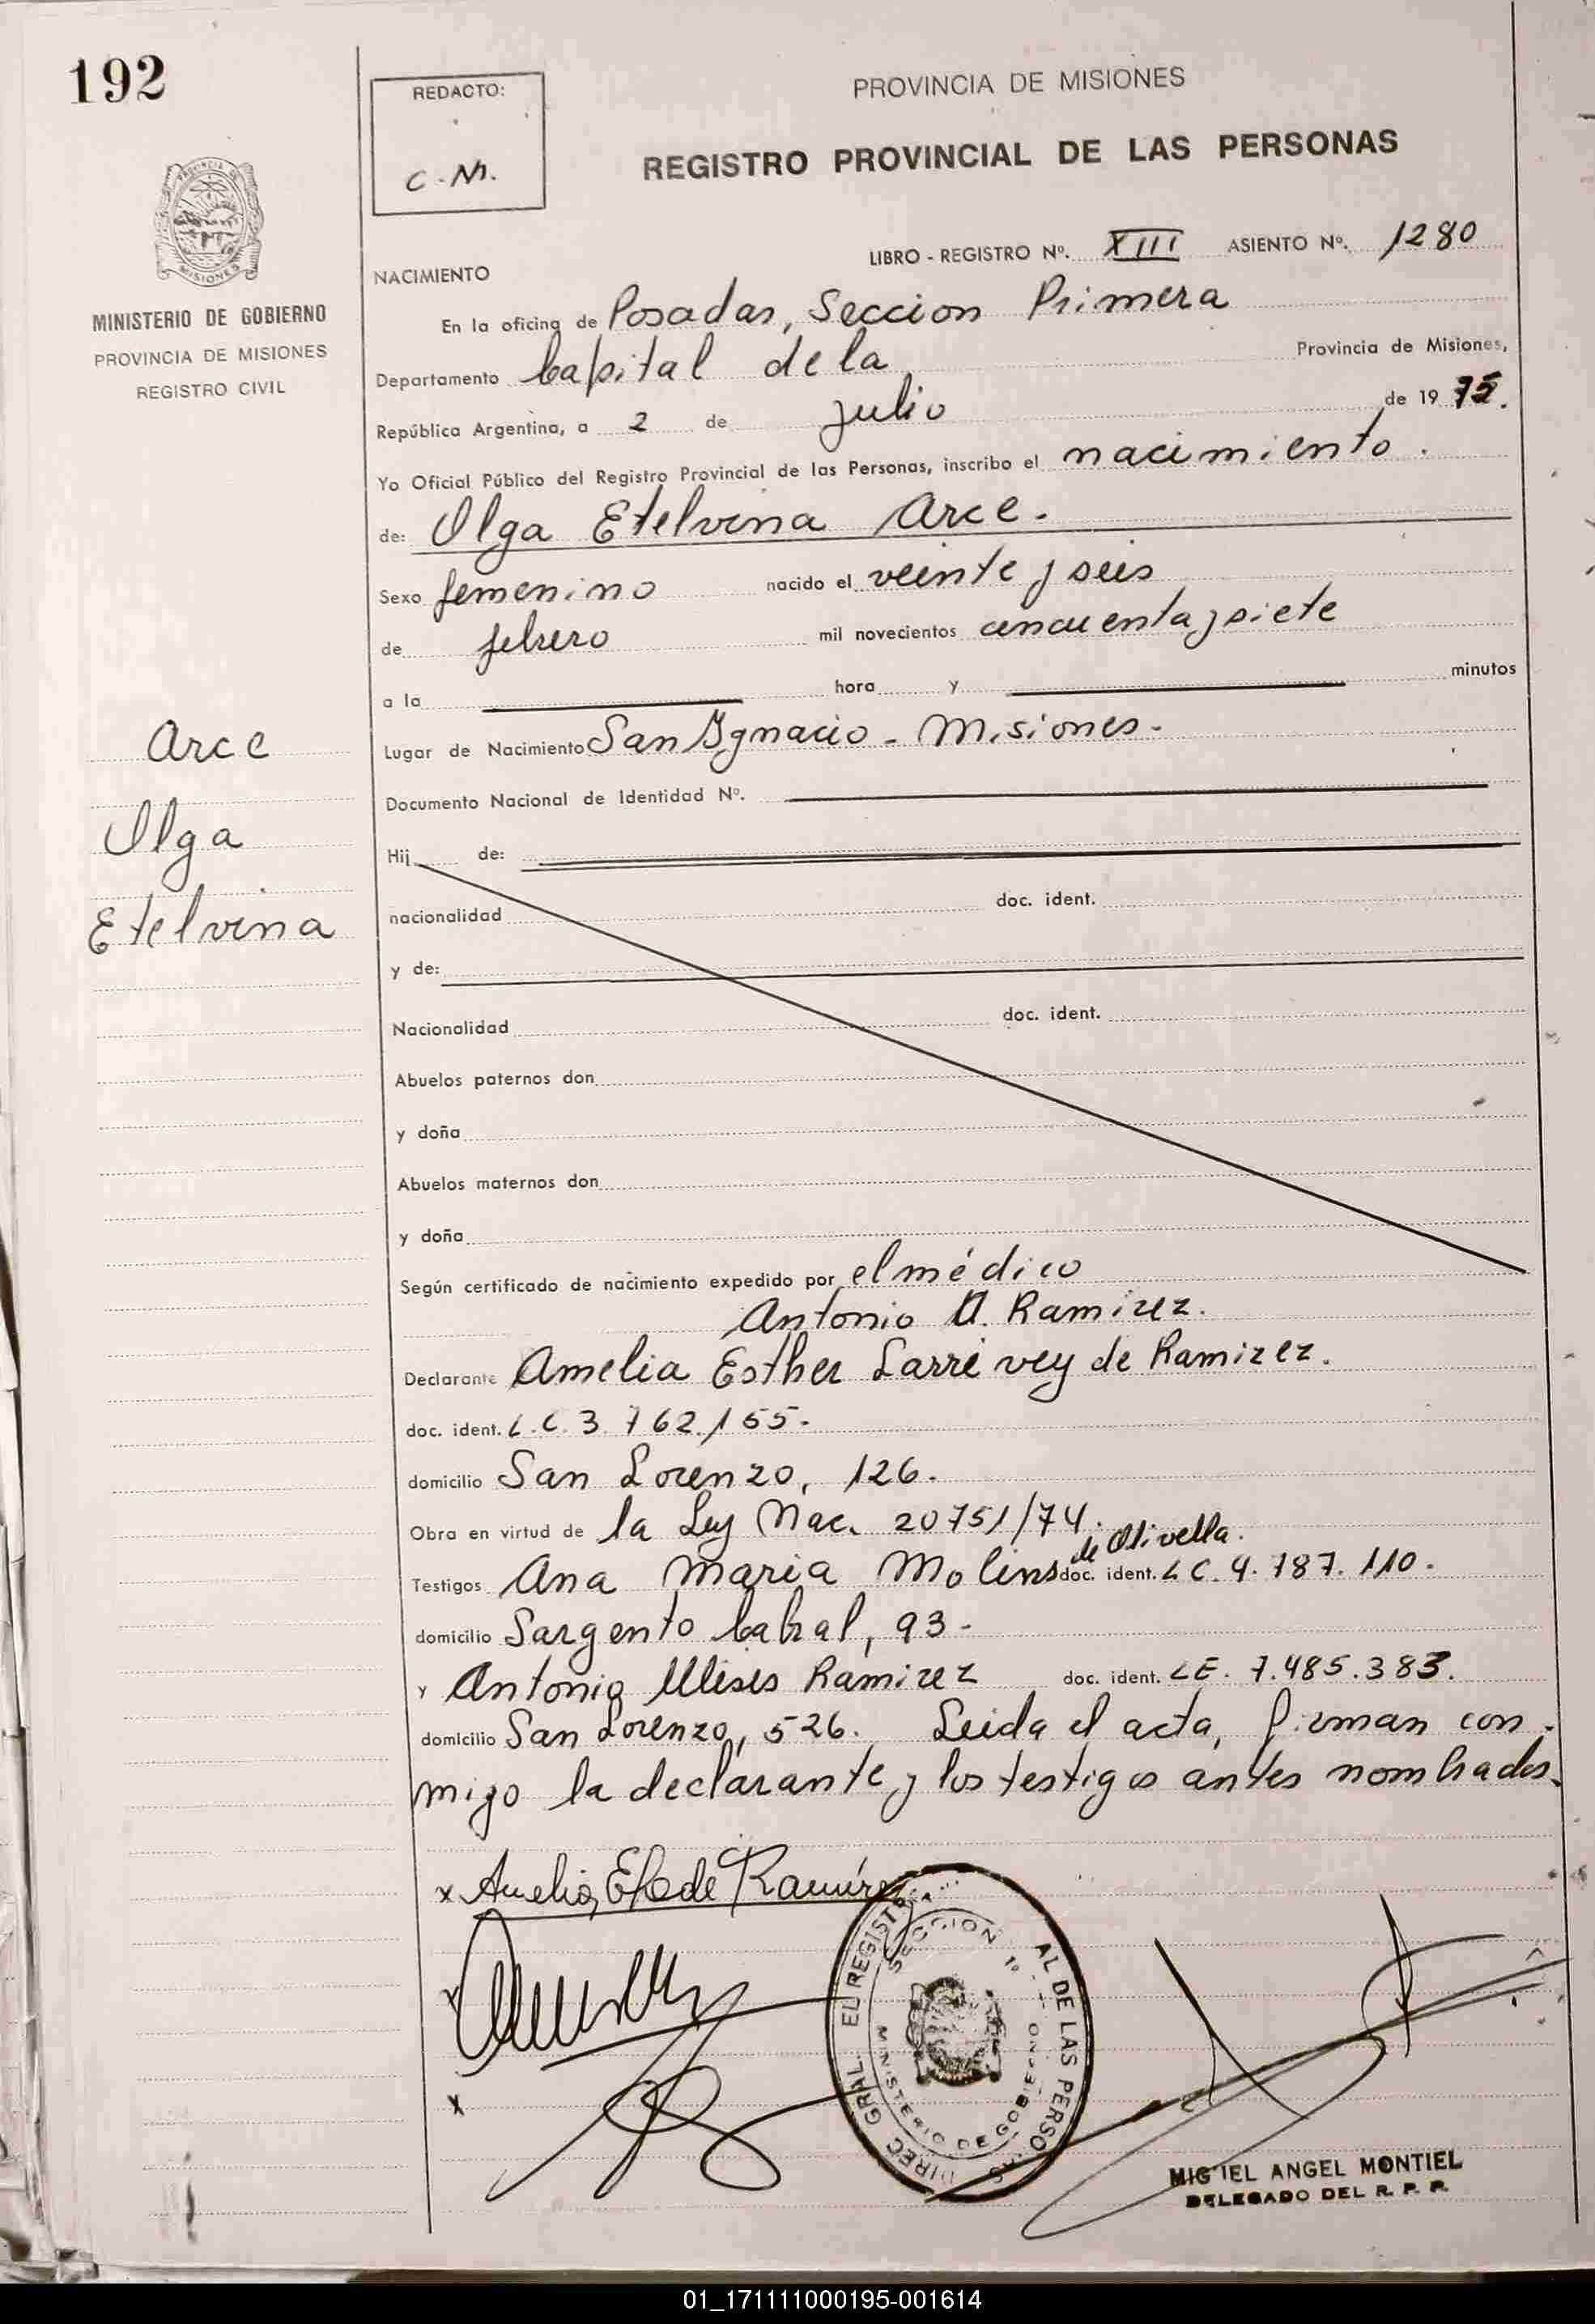 192
REDACTO:
C.M.
PROVINCIA DE MISIONES
REGISTRO PROVINCIAL DE LAS PERSONAS
LIBRO - REGISTRO Nº. XIII ASIENTO Nº. 1280
MINISTERIO DE GOBIERNO
PROVINCIA DE MISIONES
REGISTRO CIVIL
NACIMIENTO
En la oficina de Posadas, Seccion Primera
Departamento Capital de la Provincia de Misiones,
República Argentina, a 2 de julio de 1975.
Yo Oficial Público del Registro Provincial de las Personas, inscribo el nacimiento.
de: Olga Etelvina Arce.
Sexo femenino nacido el veinte y seis
de febrero mil novecientos cincuenta y siete
a la hora y minutos
Arce
Olga
Etelvina
Lugar de Nacimiento San Ygnacio - Misiones.-
Documento Nacional de Identidad Nº.
Hij de:
nacionalidad doc. ident.
y de:
Nacionalidad doc. ident.
Abuelos paternos don
y doña
Abuelos maternos don
y doña
Según certificado de nacimiento expedido por el médico
Antonio U. Ramirez.
Declarante Amelia Esther Larré vey de Ramirez.
doc. ident. L.C. 3.762.155.-
domicilio San Lorenzo, 126.
Obra en virtud de la Ley Nac. 20751/74.
de Olivella.
Testigos Ana Maria Molins doc. ident. LC. 4.787.110.
domicilio Sargento Cabral, 93-
y Antonio Ulises Ramirez doc. ident. LE. 7.485.383.
domicilio San Lorenzo, 526. Leida el acta, firman con-
migo la declarante y los testigos antes nombrados.
x Amelia E L de Ramírez
x
DIREC GRAL. EL REGISTR AL DE LAS PERSO AS
SECCION 1º
MINISTERIO DE GOBIERNO
MIG IEL ANGEL MONTIEL
DELEGADO DEL R. P. P.
01_171111000195-001614